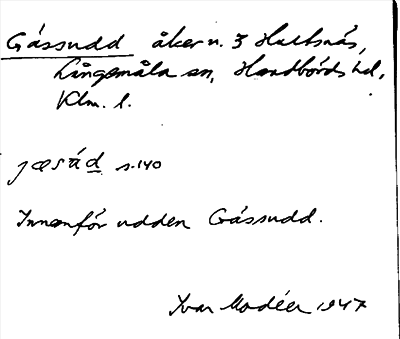 Gåssudd åker n. 3 Hultsnäs,
Långemåla sn, Handbörds hd,
Klm. l.
s. 140
Innanför udden Gåssudd.
Ivar Modéer 1947